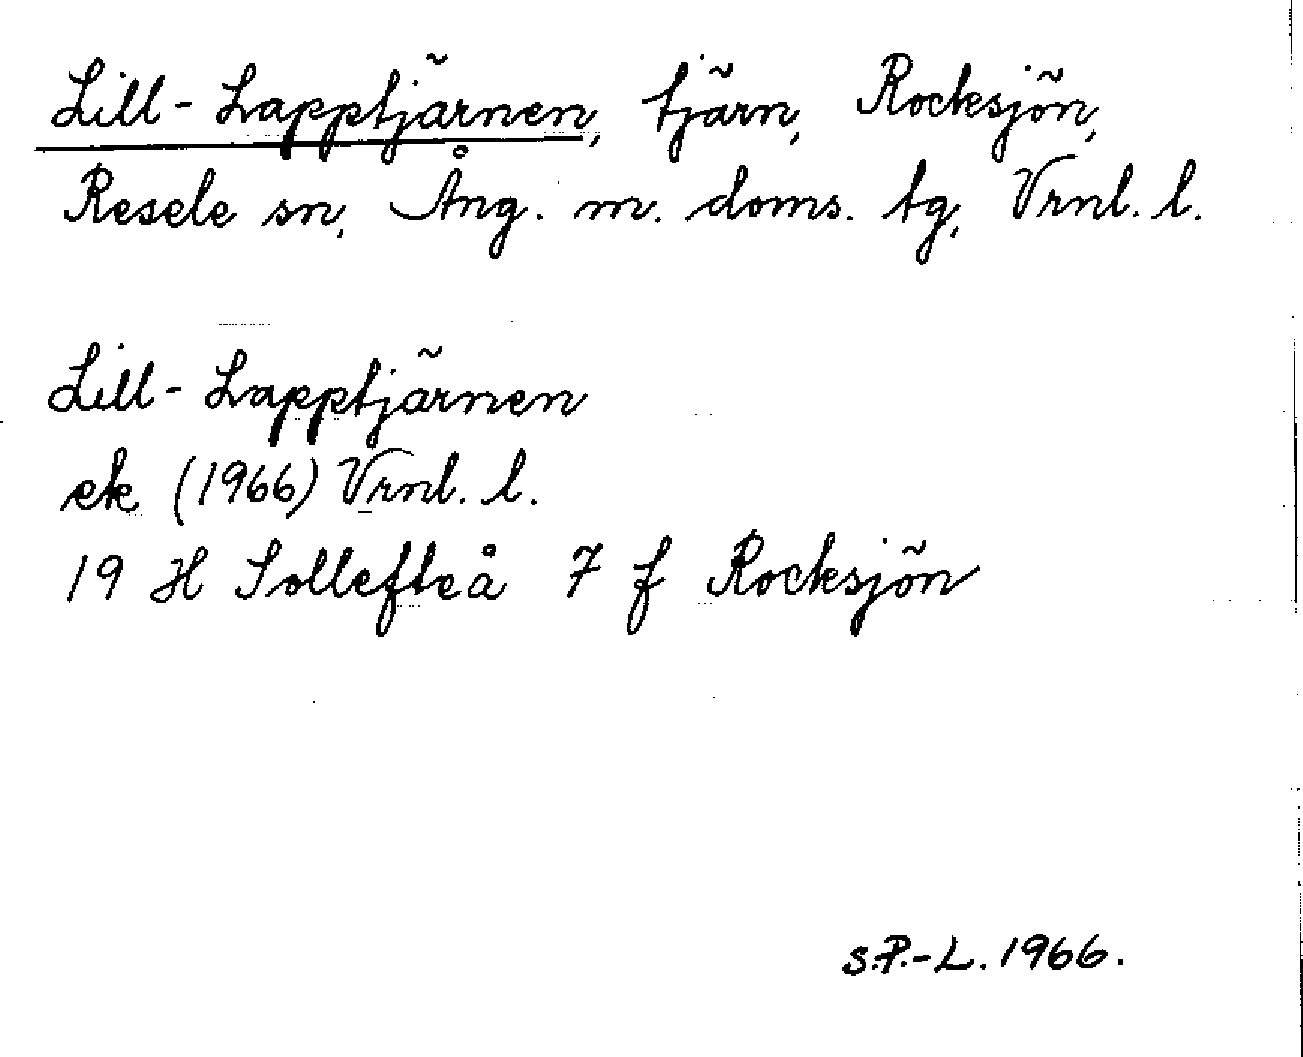 Lill-Lapptjärnen, tjärn, Rocksjön,
Resele sn, Ång. m. doms. tg, Vrnl. l.
Lill-Lapptjärnen
ek (1966) Vrnl. l.
19 H Sollefteå 7 f Rocksjön
S.P.-L. 1966.